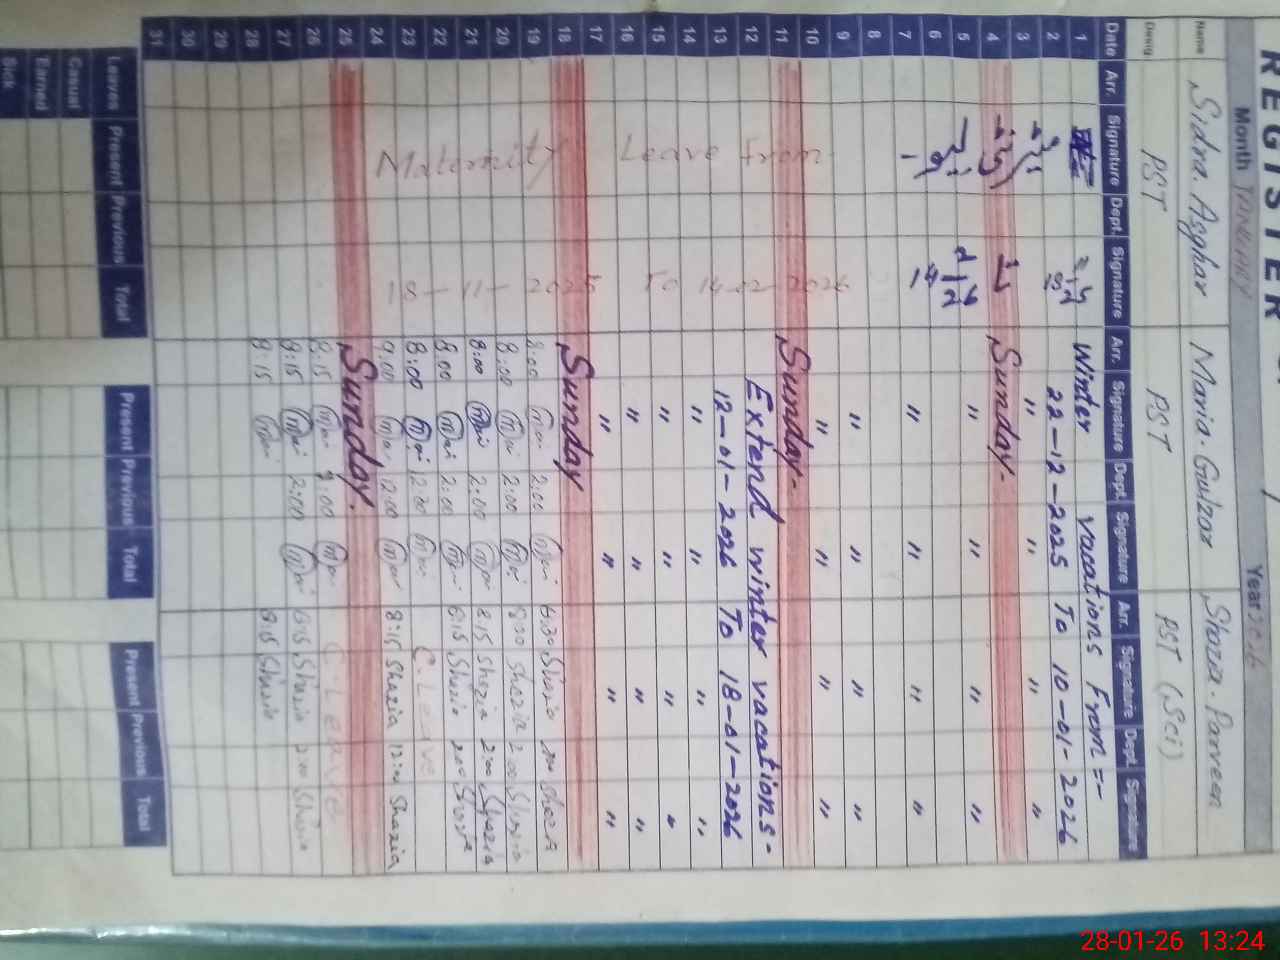 REGISTER
Month January Year 2026
Name Sidra Asghar Maria Gulzar Shazia Parveen
Desig. PST PST PST (Sci)
Date Arr. Signature Dept. Signature Arr. Signature Dept. Signature Arr. Signature Dept. Signature
1 Winter vacations From =-
2 22-12-2025 To 10-01-2026
3 " " " "
4 Sunday.
5 " " " "
6
7 " " " "
8
9 " " " "
10 " " " "
11 Sunday-
12 Extend winter vacations-
13 12-01-2026 To 18-01-2026
14 " " " "
15 " " " "
16 " " " "
17 " " " "
18 Sunday
Maternity Leave From
18-11-2025 To 14-02-2026
19 8:00 2:00
20 8:00 2:00 Shazia 2:00
21 8:00 2:00 8:15 Shazia 2:00 Shazia
22 8:00 2:00 8:15 Shazia 2:00 Shazia
23 8:00 12:00 C. Leave
24 9:00 12:00 8:15 Shazia 12:00 Shazia
25 Sunday.
26 8:15 2:00 C. Leave
27 8:15 2:00 8:15 Shazia 2:00 Shazia
28 8:15 8:15 Shazia
29
30
31
Leaves Present Previous Total Present Previous Total Present Previous Total
Casual
Earned
Sick
28-01-26 13:24